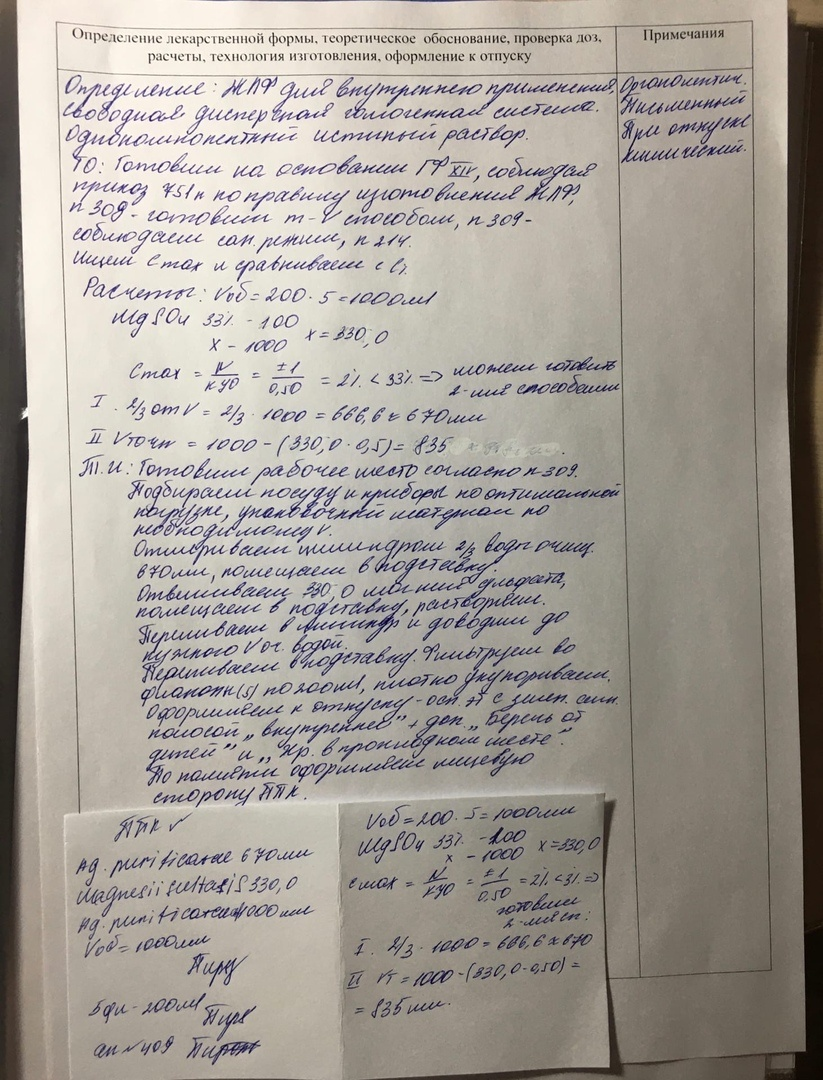 Определение лекарственной формы, теоретическое обоснование, проверка доз,
расчеты, технология изготовления, оформление к отпуску
Примечания
Определение: ЖЛФ для внутреннего применения,
свободная дисперсная гомогенная система.
Однокомпонентный истиный раствор.
Органолептич.
Письменный
При отпуске
химический.
ТО: Готовим на основании ГФ XIV, соблюдая
приказ 751н по правилу изготовления ЖЛФ,
п 309 - готовим m-V способом, п 309 -
соблюдаем сан. режим, п 214.
Ищем Cmax и сравниваем с C%
Расчеты: Vоб = 200 · 5 = 1000мл
MgSO4 33% - 100
x - 1000 x = 330,0
Cmax = N/КУО = ±1/0,50 = 2% < 33% => можем готовить
2-мя способами
I. 2/3 от V = 2/3 · 1000 = 666,6 ≈ 670мл
II Vточн = 1000 - (330,0 · 0,5) = 835
Т.И.: Готовим рабочее место согласно п 309.
Подбираем посуду и приборы по оптимальной
нагрузке, упаковочный материал по
необходимому V.
Отмериваем цилиндром 2/3 воды очищ.
670мл, помещаем в подставку.
Отвешиваем 330,0 магния сульфата,
помещаем в подставку, растворяем.
Переливаем в цилиндр и доводим до
нужного V оч. водой.
Переливаем в подставку. Фильтруем во
флаконы (5) по 200мл, плотно укупориваем.
Оформляем к отпуску - осн. эт с зелен. сигн.
полосой „внутреннее" + доп. „Беречь от
детей" и „Хр. в прохладном месте".
По памяти оформляем лицевую
сторону ППК.
ППК ✓
Ag. purificatae 670мл
Magnesii sulfatis 330,0
Ag. purificatae ad 1000мл
Vоб = 1000мл
5фл - 200мл
ан № 409
Vоб = 200 · 5 = 1000мл
MgSO4 33% - 100
x - 1000 x = 330,0
Cmax = N/КУО = ±1/0,50 = 2% < 3% =>
готовим
2-мя сп:
I. 2/3 · 1000 = 666,6 ≈ 670
II Vт = 1000 - (330,0 · 0,50) =
= 835мл.